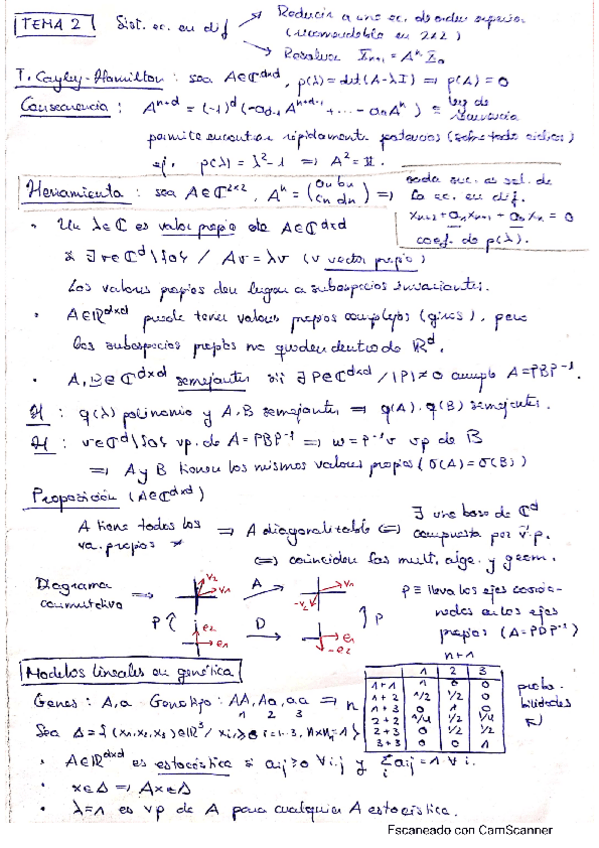 TEMA 2 Sist. ec. en dif → Reducir a una ec. de orden superior
(recomendable en 2x2)
→ Resolver X_{n+1} = A^n X_0
T. Cayley-Hamilton: sea A∈ℂ^{d×d}, p(λ)=det(A-λI) ⇒ p(A)=0
Consecuencia: A^{n+d} = (-1)^d(-a_{d-1}A^{n+d-1} + ... - a_0A^n) ≡ ley de recurrencia
permite encontrar rápidamente potencias (sobre todo ciclos)
ej. p(λ) = λ²-1 ⇒ A² = II.
Herramienta: sea A∈ℂ^{2×2}, A^n = (an bn cn dn) ⇒ cada suc. es sol. de
la ec. en dif.
x_{n+2} + a_1 x_{n+1} + a_0 x_n = 0
coef. de p(λ).
· Un λ∈ℂ es valor propio de A∈ℂ^{d×d}
si ∃ v∈ℂ^d\{0} / Av = λv (v vector propio)
Los valores propios dan lugar a subespacios invariantes.
· A∈ℝ^{d×d} puede tener valores propios complejos (giros), pero
los subespacios propios no quedan dentro de ℝ^d.
· A, B∈ℂ^{d×d} semejantes sii ∃ P∈ℂ^{d×d} / |P|≠0 cumple A=PBP⁻¹.
H: q(λ) polinomio y A, B semejantes ⇒ q(A), q(B) semejantes.
H: v∈ℂ^d\{0} vp. de A = PBP⁻¹ ⇒ w = P⁻¹v vp de B
⇒ A y B tienen los mismos valores propios (σ(A)=σ(B))
Proposición (A∈ℂ^{d×d})
A tiene todos los
va. propios ≠ ⇒ A diagonalizable ⇔ ∃ una base de ℂ^d
compuesta por v.p.
⇔ coinciden las mult. alge. y geom.
Diagrama
conmutativo ⇒ v2 v1 A -v2 v1
P↑ ↑P
e2 e1 D e1 -e2
P ≡ lleva los ejes
en los ejes
propios (A=PDP⁻¹)
Modelos lineales en genética
Genes: A, a Genotipo: AA, Aa, aa ⇒
1 2 3
n+1
n
1 2 3
1+1 1 0 0
1+2 1/2 1/2 0
1+3 0 1 0
2+2 1/4 1/2 1/4
2+3 0 1/2 1/2
3+3 0 0 1
proba-
bilidades
Sea Δ = {(x1, x2, x3)∈ℝ³ / xi≥0 i=1..3, =1}
· A∈ℝ^{d×d} es estocástica si aij≥0 ∀i,j y Σ aij = 1 ∀i.
· x∈Δ ⇒ Ax∈Δ
· λ=1 es vp de A para cualquier A estocástica.
Escaneado con CamScanner